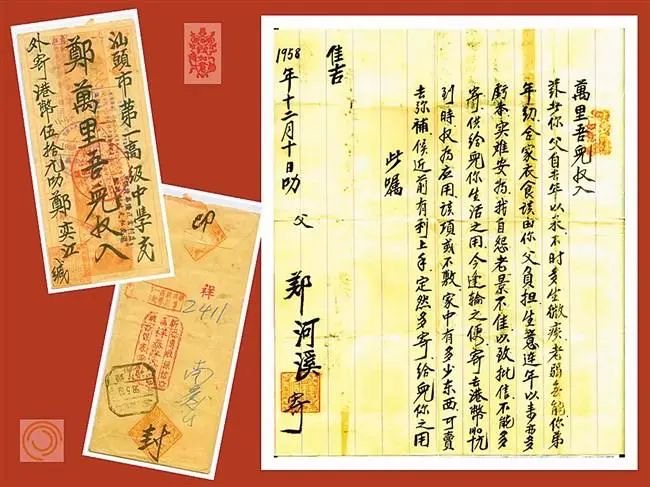 汕頭市第一高級中學交
鄭萬里吾兒收入
外寄港幣伍拾元叻鄭奕江緘
祥
2411
封
萬里吾兒收入
你父自去年以來不时多生微疾老弱無能你弟
年幼合家衣食該由你父負担生意連年以来多
虧本实难安我自怨老景不佳以致批信不能多
寄供給兒你生活之用今逢輪之便寄去港幣
到時收為应用該項或不敷家中有多少东西可賣
去弥補候近前有利上手定然多寄給兒你之用
此嘱
佳吉
1958年十二月十日叻 父 郑河溪寄